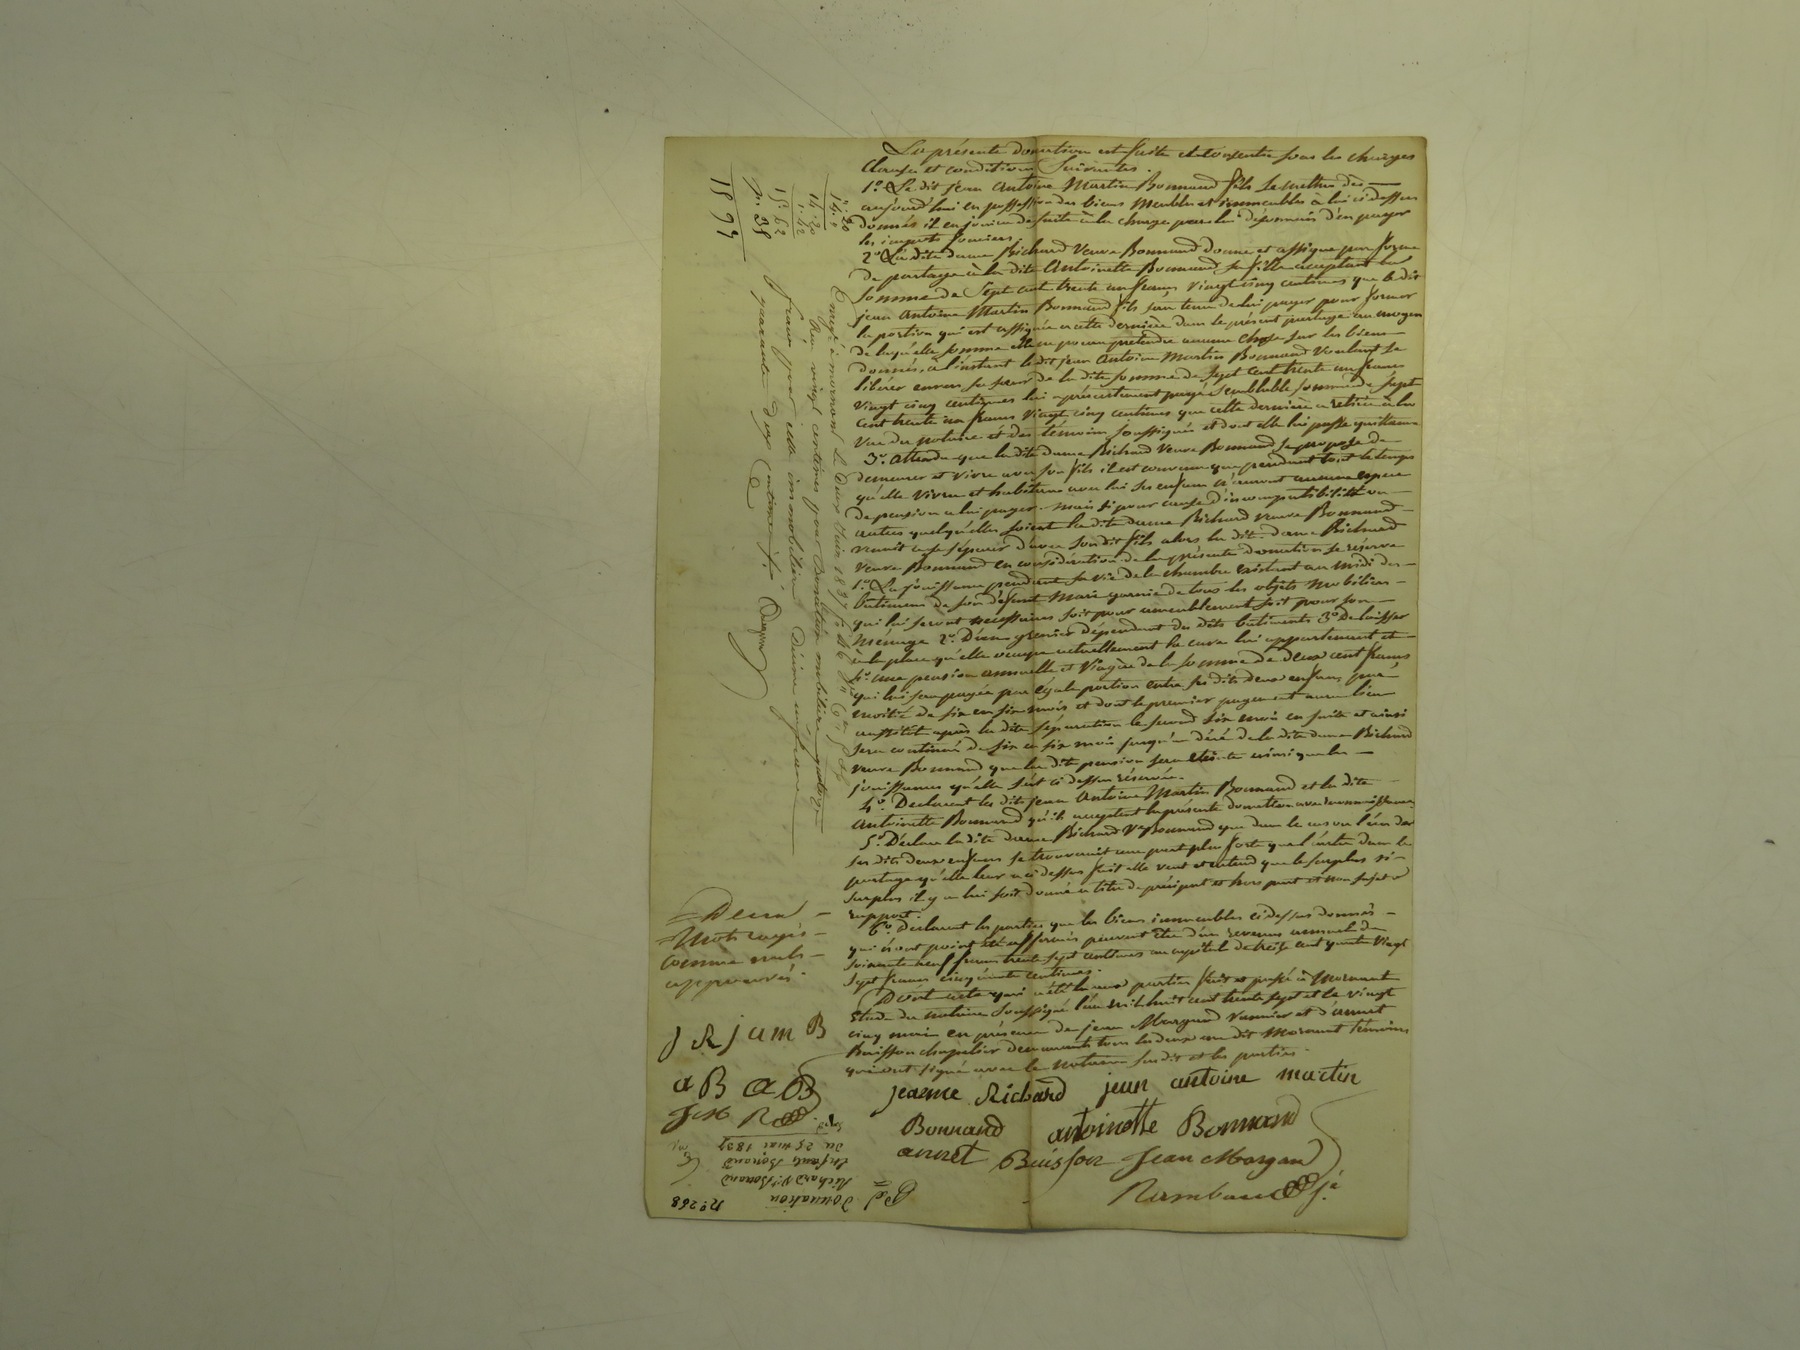 La présente donation est faite et consentie sous les charges
clauses et conditions suivantes.
1.o Le dit jean Antoine Martin Bonnand fils se mettra dès
aujourd'hui en possession des biens meubles et immeubles à lui ci dessus
donnés il en jouira de suite à la charge par lui désormais d'en payer
les impots fonciers.
2.o La dite dame Richard Veuve Bonnand donne et assigne par forme
de partage à la dite Antoinette Bonnand sa fille acceptant la
somme de Sept cent trente un francs vingt cinq centimes que le dit
jean Antoine Martin Bonnand fils sera tenu de lui payer pour former
la portion qui est assignée a cette dernière dans le présent partage au moyen
de laquelle somme elle ne pourra prétendre aucune chose sur les biens
donnés, à l'instant le dit jean Antoine Martin Bonnand voulant se
libérer envers sa sœur de la dite somme de Sept cent trente un francs
vingt cinq centimes lui a présentement payé semblable somme de sept
cent trente un francs vingt cinq centimes que cette dernière a retirée à la
vue du notaire et des témoins soussignés et dont elle lui passe quittance
3.o Attendu que la dite dame Richard Veuve Bonnand se propose de
demeurer et vivre avec son fils il est convenu que pendant tout le temps
qu'elle vivra et habitera avec lui ses enfans n'auront aucune espece
de pension a lui payer. mais si pour cause d'incompatibilité ou
autres quelqu'elles soient la dite dame Richard veuve Bonnand
venait a se séparer d'avec son dit fils alors la dite dame Richard
Veuve Bonnand en considération de la présente donation se réserve
1.o La jouissance pendant sa vie de la chambre existant au midi des
batimens de son défunt Mari garnie de tous les objets mobiliers
qui lui seront nécessaires soit pour ameublement soit pour son
ménage 2.o D'un grenier dépendant du dits batiments 3.o De laisser
à la place qu'elle occupe actuellement la cuve lui appartenant et
4.o une pension annuelle et viagère de la somme de deux cent francs
qui lui sera payée par égale portion entre ses dits deux enfans, par
moitié de six en six mois et dont le premier payement aura lieu
aussitôt après la dite séparation le second six mois en suite et ainsi
sera continué de six en six mois jusqu'au décé de la dite dame Richard
veuve Bonnand que la dite pension sera éteinte ainsi que la
jouissance qu'elle s'est ci dessus réservée.
4.o Declarent les dits jean Antoine Martin Bonnand et la dite
Antoinette Bonnand qu'ils acceptent la présente donation avec reconnaissance
5.o Déclare la dite dame Richard Ve Bonnand que dans le cas ou l'un des
ses dits deux enfans se trouverait une part plus forte que l'autre dans le
partage qu'elle leur a ci dessus fait elle veut et entend que le surplus si
surplus il y a lui soit donné a titre de préciput et hors part et non sujet a
rapport.
6.o declarent les parties que les biens immeubles ci dessus donnés
qui n'ont point été affermés peuvent être d'un revenu annuel de
soixante neuf francs trente sept centimes au capital de treize cent quatre vingt
sept francs cinquante centimes.
Dont acte qui a été lu aux parties fait et passé à Mornant
Etude du notaire soussigné l'an mil huit cent trente sept et le vingt
cinq mai en présence de jean Margand vannier et d'annet
Buisson chapelier demeurants tous les deux au dit Mornant temoins
qui ont signé avec le notaire susdit et les parties.
jeanne Richard jean antoine martin
Bonnand antoinette Bonnand
annet Buisson Jean Margand
Rambaud
Deux
mots rayés
comme nuls
approuvés.
J R j a m B
a B a B
J M R
14.20
1.42
15.62
1897
Enregé à mornant Le deux Juin 1837
Reçu vingt centimes pour Donation mobilière, quatorze
francs pour celle immobilière Décime un franc
quarante deux centimes
n.o 268
Donation
Richard Ve Bonand
Enfants Bonand
du 25 mai 1837